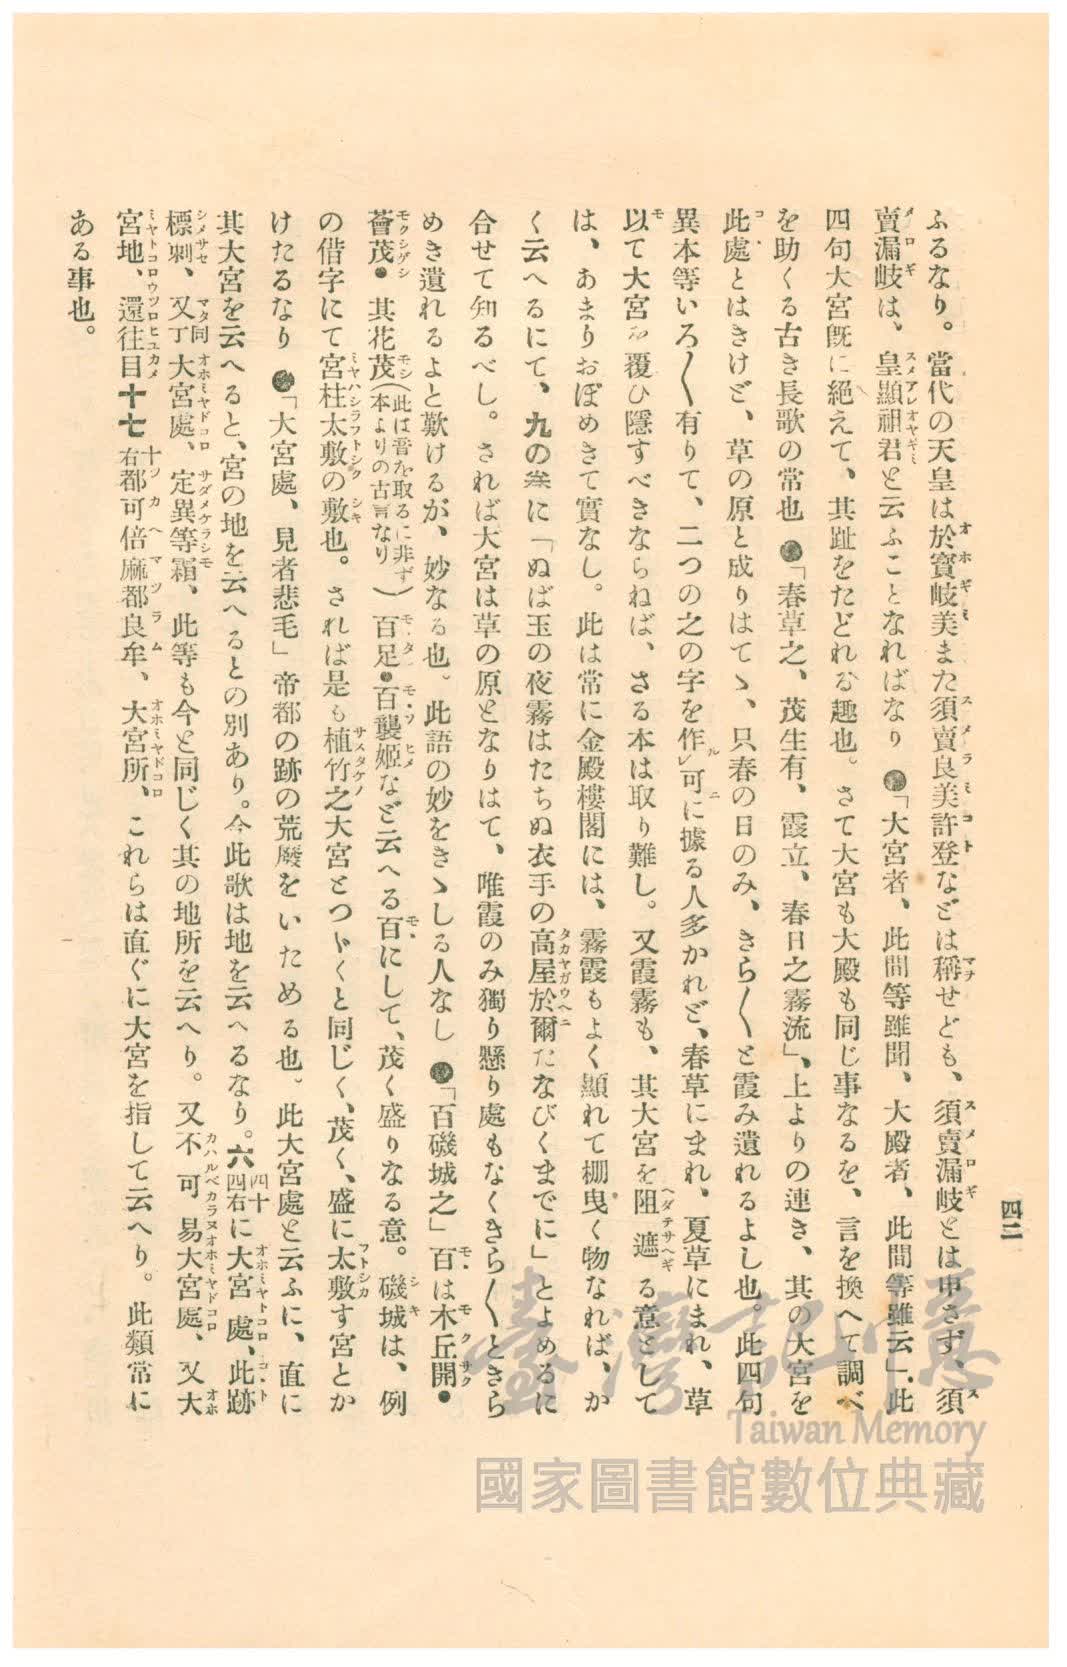 四二
ふるなり。當代の天皇は於寳岐美また須賣良美許登などは稱せども、須賣漏岐とは申さず、須
賣漏岐は、皇顯祖君と云ふことなればなり●「大宮者、此間等雖聞、大殿者、此間等雖云」。此
四句大宮既に絶えて、其趾をたどれる趣也。さて大宮も大殿も同じ事なるを、言を換へて調べ
を助くる古き長歌の常也●「春草之、茂生有、霞立、春日之霧流」、上よりの連き、其の大宮を
此處とはきけど、草の原と成りはてゝ、只春の日のみ、きら〱と霞み遺れるよし也。此四句
異本等いろ〱有りて、二つの之の字を作レ可に據る人多かれど、春草にまれ、夏草にまれ、草
以て大宮を覆ひ隱すべきならねば、さる本は取り難し。又霞霧も、其大宮を阻遮る意として
は、あまりおぼめきて實なし。此は常に金殿樓閣には、霧霞もよく顯れて棚曳く物なれば、か
く云へるにて、九の卷に「ぬば玉の夜霧はたちぬ衣手の高屋於爾たなびくまでに」とよめるに
合せて知るべし。されば大宮は草の原となりはて、唯霞のみ獨り懸り處もなくきら〱ときら
めき遺れるよと歎けるが、妙なる也。此語の妙をきゝしる人なし●「百磯城之」百は木丘開●
薈茂● 其花茂(此は音を取るに非ず本よりの古言なり)百足●百襲姫など云へる百にして、茂く盛りなる意。磯城は、例
の借字にて宮柱太敷の敷也。されば是も植竹之大宮とつゞくと同じく、茂く、盛に太敷す宮とか
けたるなり●「大宮處、見者悲毛」帝都の跡の荒廢をいためる也。此大宮處と云ふに、直に
其大宮を云へると、宮の地を云へるとの別あり。今此歌は地を云へるなり。六四十四右に大宮處、此跡
標刺、又丁同大宮處、定異等霜、此等も今と同じく其の地所を云へり。又不可易大宮處、又大
宮地、還往目十七十右都可倍麻都良牟、大宮所、これらは直ぐに大宮を指して云へり。此類常に
ある事也。
臺灣記憶
Taiwan Memory
國家圖書館數位典藏